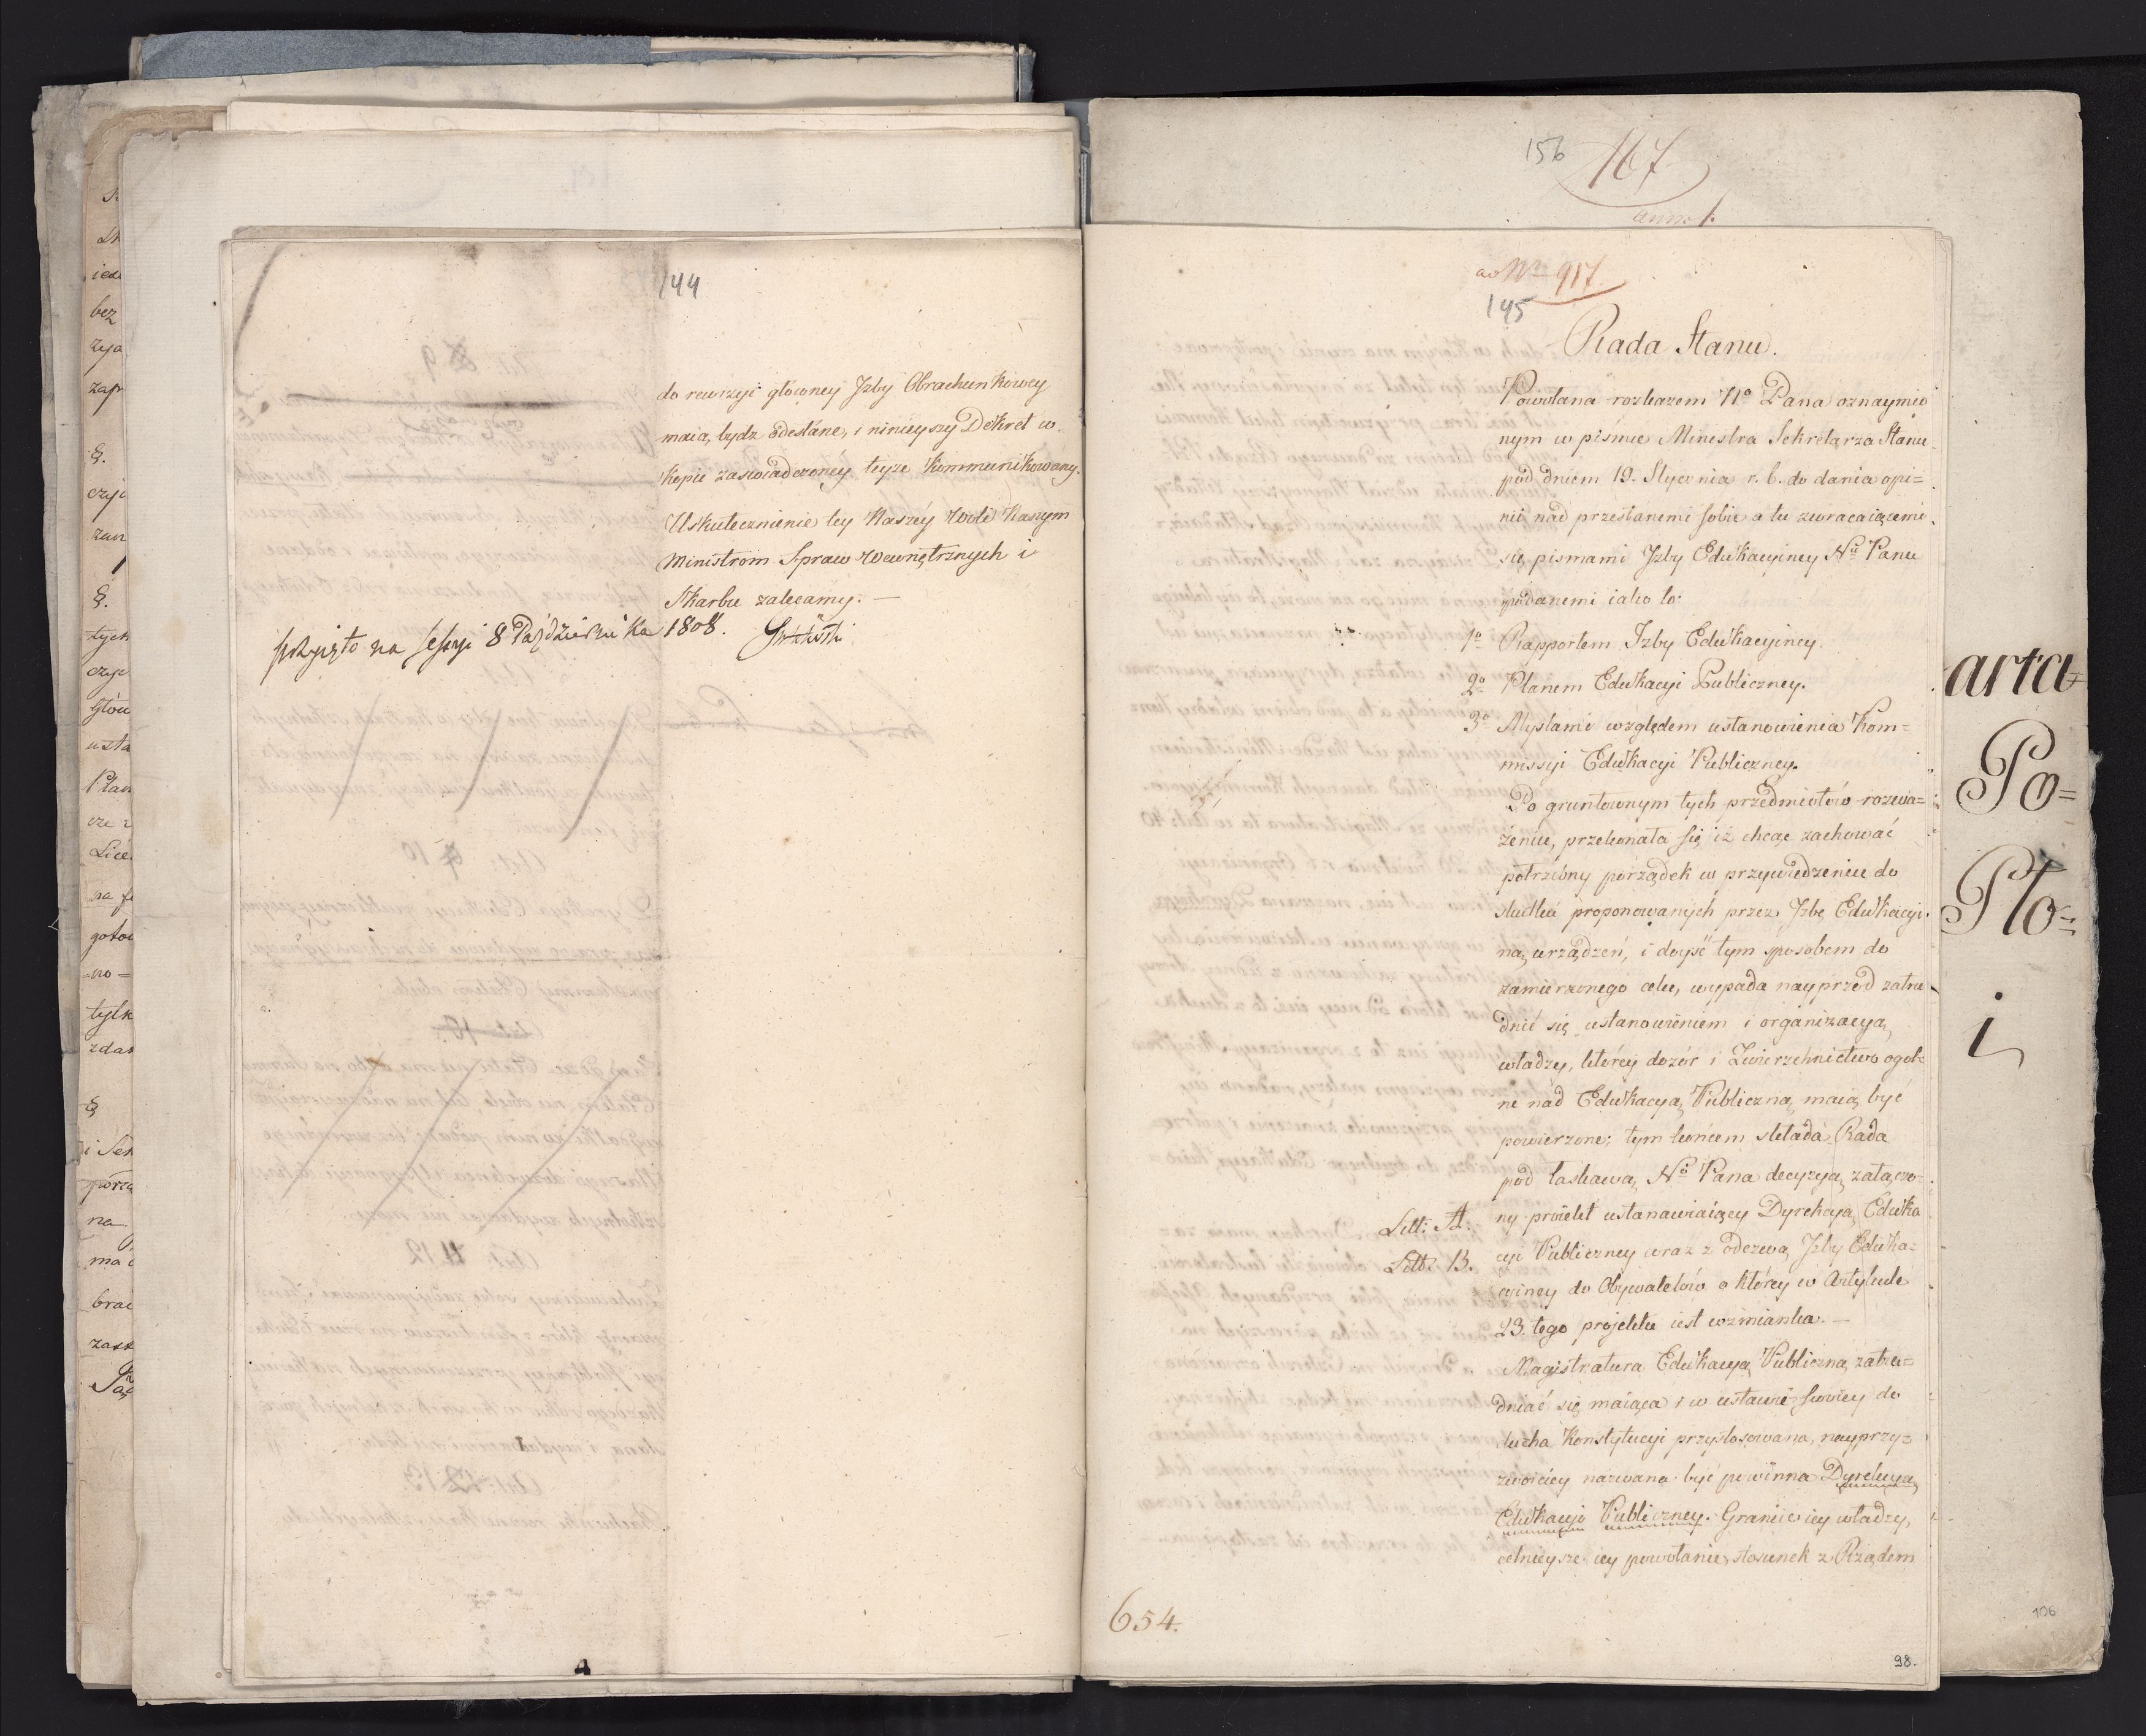 144
do rewizyi główney Jzby Obrachunkowey
maią bydz odesłane, i ninieyszy Dekret w
kopii zaswiadczoney teyże kommunikowany.
Uskutecznienie tey Naszéy Woli Naszym
Ministrom Spraw Wewnętrznych i
Skarbu zalecamy. —
przyięto na sessyi 8 Października 1808.
156
167
anno 1.
ad Nr 917.
145
Rada Stanu.
Powołana rozkazem No Pana oznaymio
nym w piśmie Ministra Sekretarza Stanu
pod dniem 19. Stycznia r. b. do dania opi=
nii nad przesłanemi sobie a tu zwracaiącemi
się pismami Jzby Edukacyiney Nu Panu
podanemi iako to:
1o Rapportem Izby Edukacyiney.
2o Planem Edukacyi Publiczney.
3o Myslami względem ustanowienia Kom=
missyi Edukacyi Publiczney.
Po gruntownym tych przedmiotów rozwa=
żeniu, przekonała się iż chcąc zachować
potrzebny porządek w przywiedzeniu do
skutku proponowanych przez Jzbę Edukacyi
ną urządzeń, i doyść tym sposobem do
zamierzonego celu, wypada nayprzód zatru
dnić się ustanowieniem i organizacyą
władzy, którey dozór i Zwierzchnictwo ogol=
ne nad Edukacyą Publiczną maią być
powierzone; tym końcem składa Rada
pod łaskawą No Pana decyzyą załączo=
Litt: A. ny proiekt ustanawiaiący Dyrekcyą Eduka
Litt: B. cyi Publiczney wraz z odezwą Jzby Eduka=
cyiney do Obywatelów o którey w Artykule
23. tego projektu iest wzmianka. —
Magistratura Edukacyą Publiczną zatru=
dniać się maiąca i w ustawie swoiey do
ducha Konstytucyi przystosowana, nayprzy=
zwoiciey nazwana być powinna Dyrekcyą
Edukacyi Publiczney. Granice iey władzy,
celnieysze iey powołanie, stosunek z Rządem
654.
98.
arta
Po=
Pło=
i
106